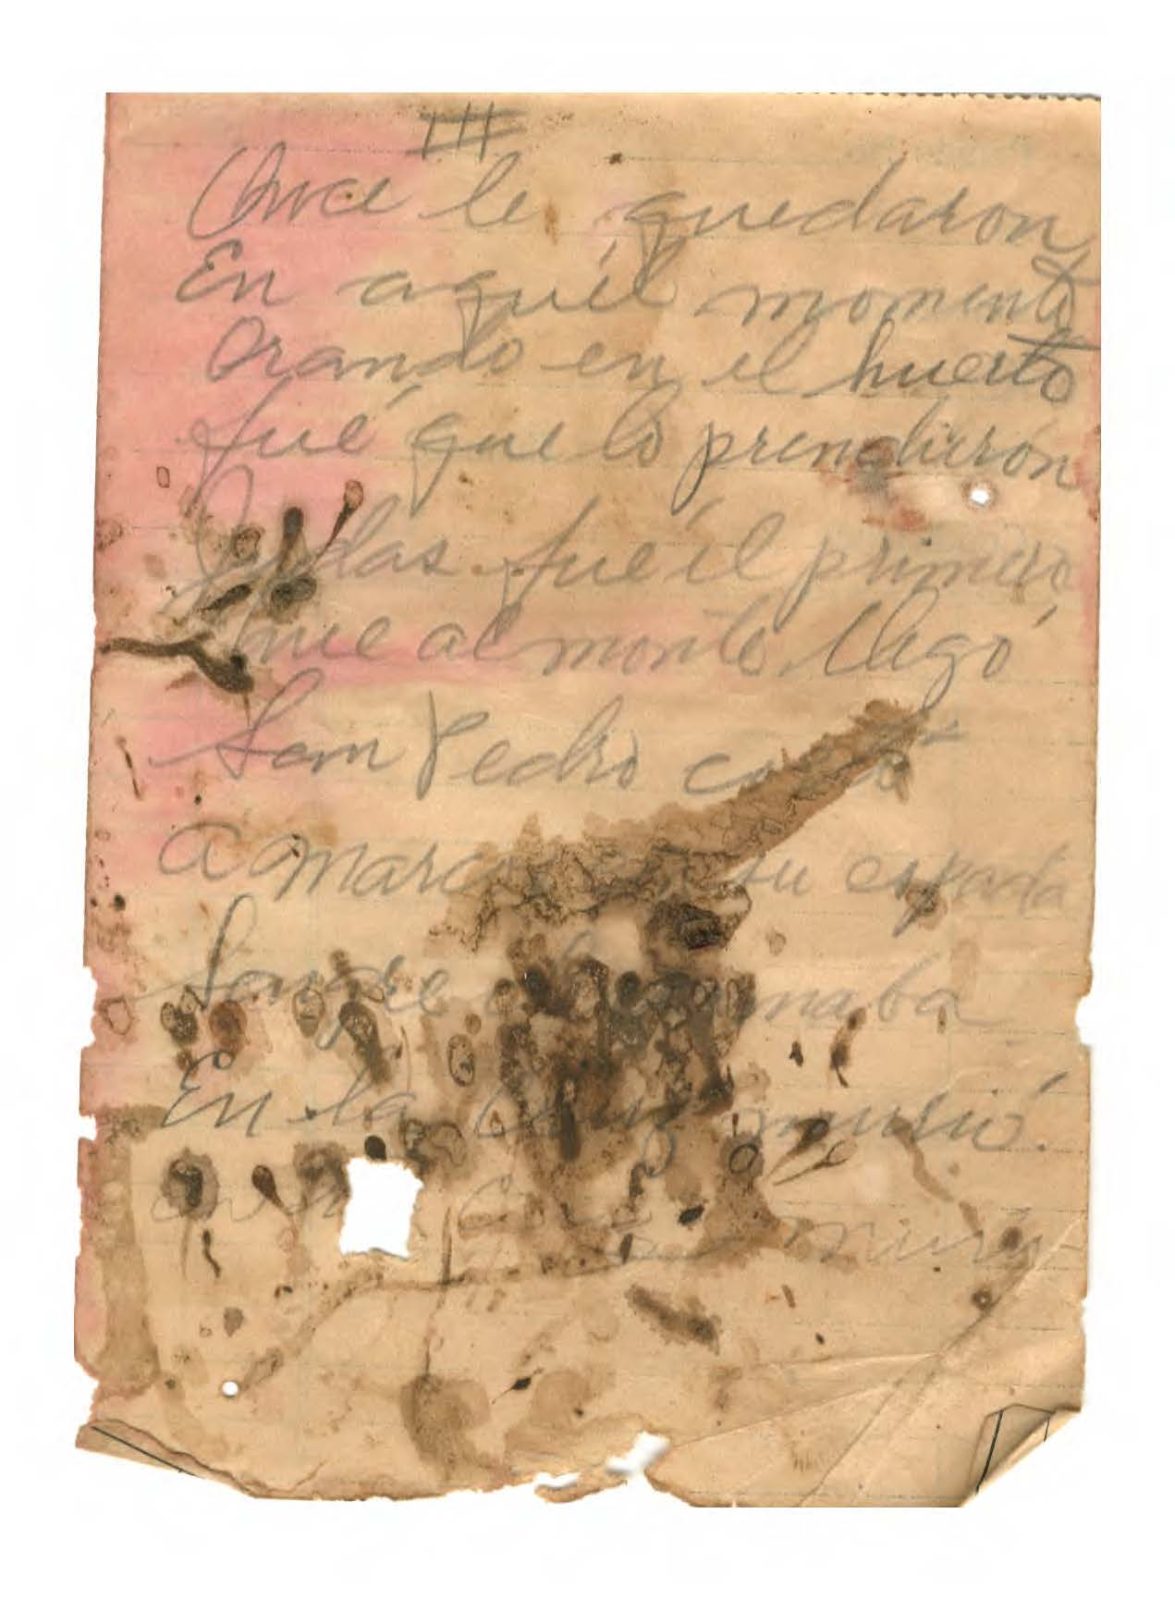 III
Once le quedaron
En aquél momento
Orando en el huerto
fué que lo prendierón
Judas fue él primero
que al monte llegó
San Pedro cortó
A Marco con su espada
Sangre derramaba
En la Cruz murió.
Cruz murió